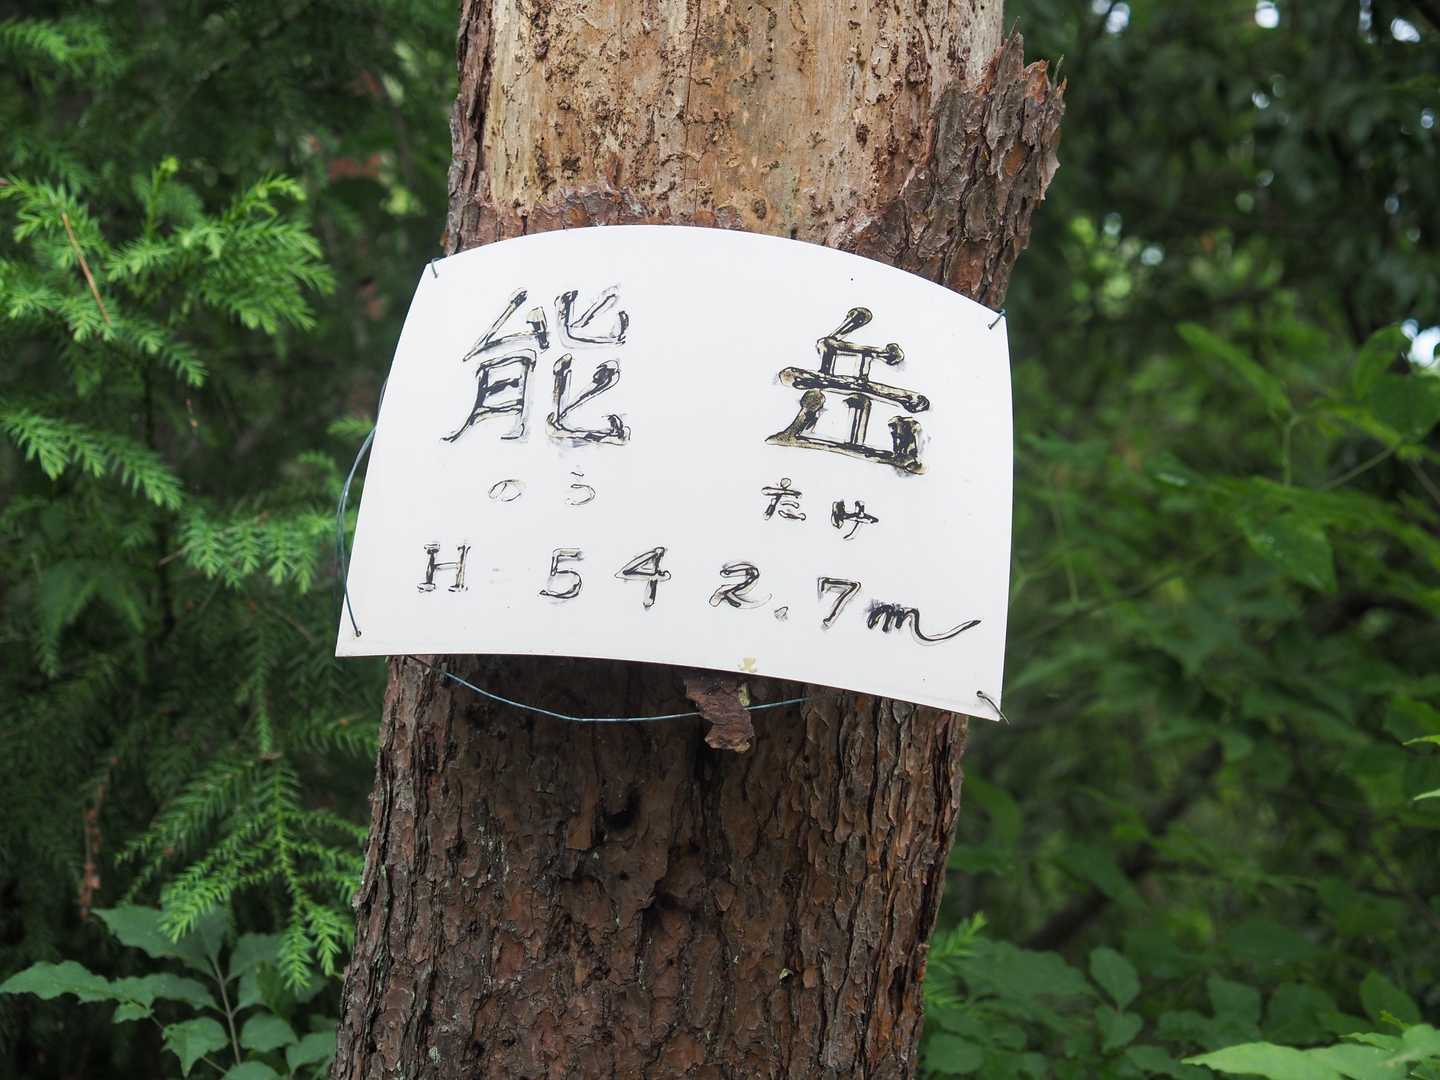 能岳
のうたけ
H 542.7m